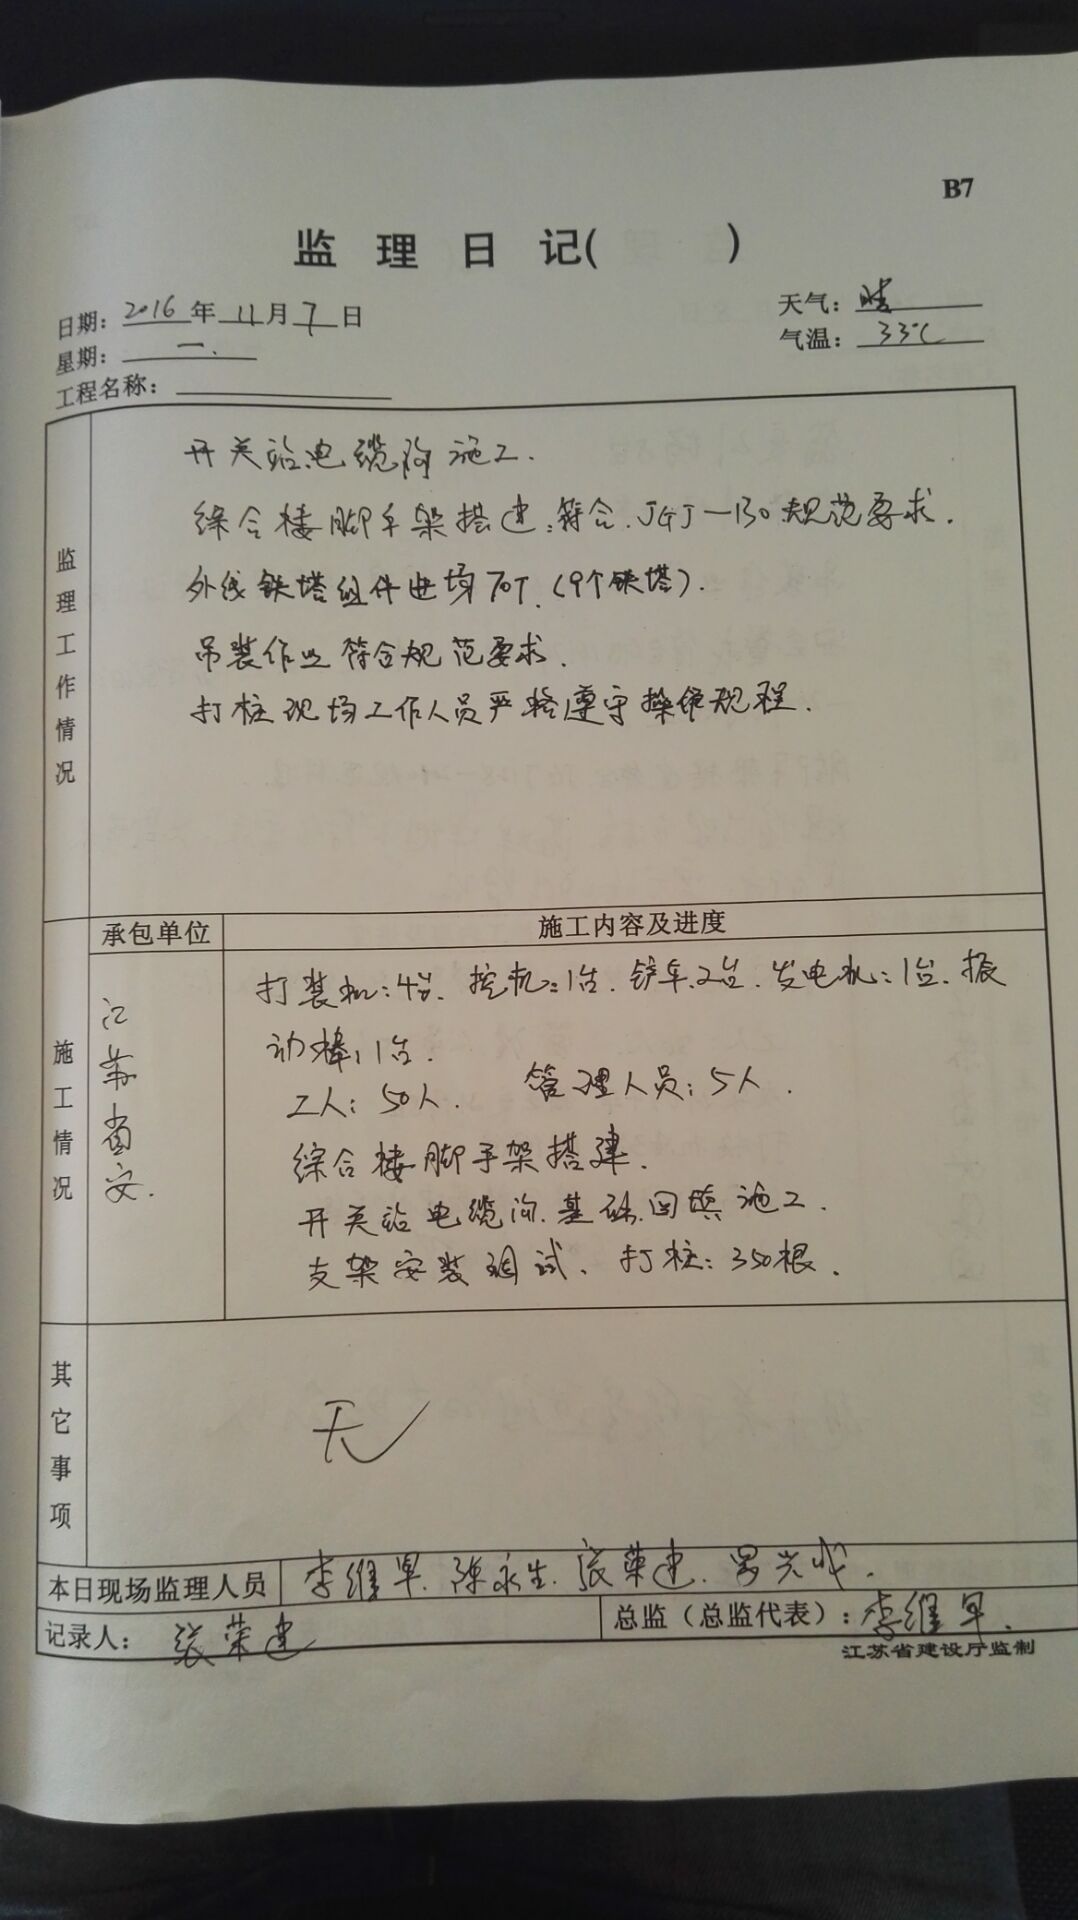 B7
监理日记( )
日期：2016年11月7日
天气：晴
星期：一.
气温：33℃
工程名称：
监理工作情况
开关站电缆沟施工.
综合楼脚手架搭建:符合.JGJ-130规范要求.
外线铁塔组件进场70T.(9个铁塔).
吊装作业符合规范要求.
打桩现场工作人员严格遵守操作规程.
施工情况
承包单位
施工内容及进度
江苏省安.
打装机:4台.挖机:1台.铲车2台.发电机:1台.振
动棒:1台.
工人:50人. 管理人员:5人.
综合楼脚手架搭建.
开关站电缆沟.基础.回填施工.
支架安装调试. 打桩:350根.
其它事项
无
本日现场监理人员 李维早.陈永生.张荣建.罗兴成.
记录人：张荣建
总监（总监代表）：李维早.
江苏省建设厅监制